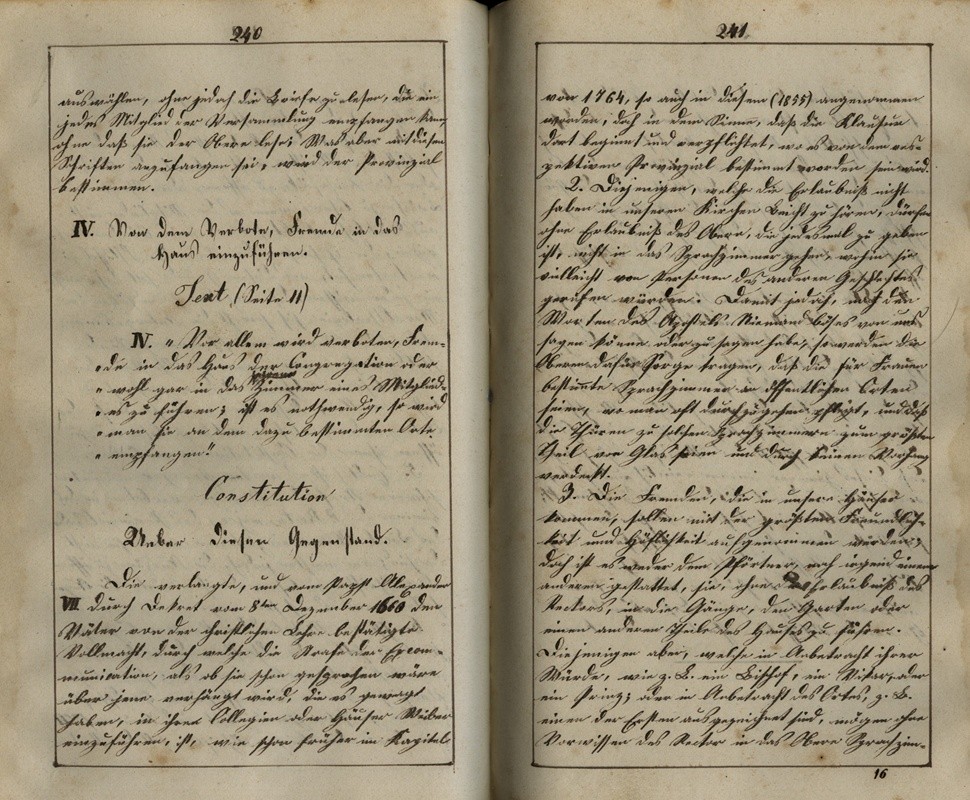 240
auswählen, ohne jedoch die Briefe zu lesen, die ein
jedes Mitglied der Versammlung empfangen kann
ohne daß sie der Obere lese; Was aber mit diesen
Schriften anzufangen sei, wird der Provinzial
bestimmen.
IV. Von dem Verbote, Fremde in das
Haus einzuführen.
Text (Seite 11)
IV. „Vor allem wird verboten, Frem-
„de in das Haus der Congregation oder
„wohl gar in das Zimmer eines Mitglied-
„es zu führen; ist es nothwendig, so wird
„man sie an dem dazu bestimmten Orte
„empfangen."
Constitution
Ueber diesen Gegenstand.
Die verlangte, und vom Papst Alexander
VII durch Dekret vom 8ten Dezember 1660 den
Väter von der christlichen Lehre bestätigte
Vollmacht, durch welche die Strafe der Excom-
munication, als ob sie schon gesprochen wäre
über jene verhängt wird, die es gewagt
haben, in ihren Collegien oder Häuser Weiber
einzuführen, ist, wie schon früher im Kapitel
241
von 1764, so auch in diesem (1855) angenommen
worden, doch in dem Sinne, daß die Klausur
dort beginnt und verpflichtet, wo es von dem res-
pektiven Provinzial bestimmt worden sein wird.
2. Diejenigen, welche die Erlaubniß nicht
haben in unseren Kirchen Beicht zu hören, dürfen
ohne Erlaubniß des Obern, die jedesmal zu geben
ist, nicht in das Sprachzimmer gehen, wohin sie
vielleicht von Personen des anderen Geschlechtes
gerufen würden. Damit jedoch, nach den
Worten des Apostels Niemand böses von uns
sagen könne oder zu sagen habe, so werden die
Oberen dafür Sorge tragen, daß die für Frauen
bestimmte Sprachzimmer an öffentlichen Orten
seien, wo man oft durchzugehen pflegt, und daß
die Thüren zu solchen Sprachzimmern zum größten
Theil von Glas seien und durch keinen Vorhang
verdeckt.
3. Die Fremden, die in unsere Häuser
kommen, sollen mit der größten Freundlich-
keit und Höflichkeit aufgenommen werden;
doch ist es weder dem Pförtner, noch irgend einem
anderen gestattet, sie, ohne Erlaubniß des
Rectors, in die Gänge, den Garten oder
einen anderen Theile des Hauses zu führen.
Diejenigen aber, welche in Anbetracht ihrer
Würde, wie z. B. ein Bischof, ein Vikar, oder
ein Prinz; oder in Anbetracht des Ortes, z. B.
einer der Ersten ausgezeichnet sind, mögen ohne
Vorwissen des Rector in das Obere Sprachzim-
16